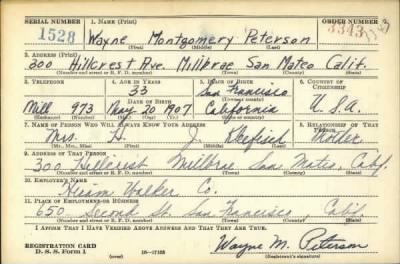 SERIAL NUMBER 1. NAME (Print) ORDER NUMBER
1528 Wayne Montgomery Peterson 3343
(First) (Middle) (Last)
2. ADDRESS (Print)
300 Hillcrest Ave. Millbrae San Mateo Calif.
(Number and street or R. F. D. number) (Town) (County) (State)
3. TELEPHONE 4. AGE IN YEARS 5. PLACE OF BIRTH 6. COUNTRY OF CITIZENSHIP
33 San Francisco
DATE OF BIRTH (Town or county)
Mill 973 May 20 1907 California U.S.A.
(Exchange) (Number) (Mo.) (Day) (Yr.) (State or country)
7. NAME OF PERSON WHO WILL ALWAYS KNOW YOUR ADDRESS 8. RELATIONSHIP OF THAT PERSON
Mrs. H J
(Mr., Mrs., Miss) (First) (Middle) (Last)
9. ADDRESS OF THAT PERSON
300 Hillcrest Millbrae San Mateo, Calif.
(Number and street or R. F. D. number) (Town) (County) (State)
10. EMPLOYER'S NAME
Hiram Walker Co.
11. PLACE OF EMPLOYMENT OR BUSINESS
650 Second St. San Francisco Calif
(Number and street or R. F. D. number) (Town) (County) (State)
I AFFIRM THAT I HAVE VERIFIED ABOVE ANSWERS AND THAT THEY ARE TRUE.
REGISTRATION CARD
D. S. S. Form 1 (over) Wayne M. Peterson
(Registrant's signature)